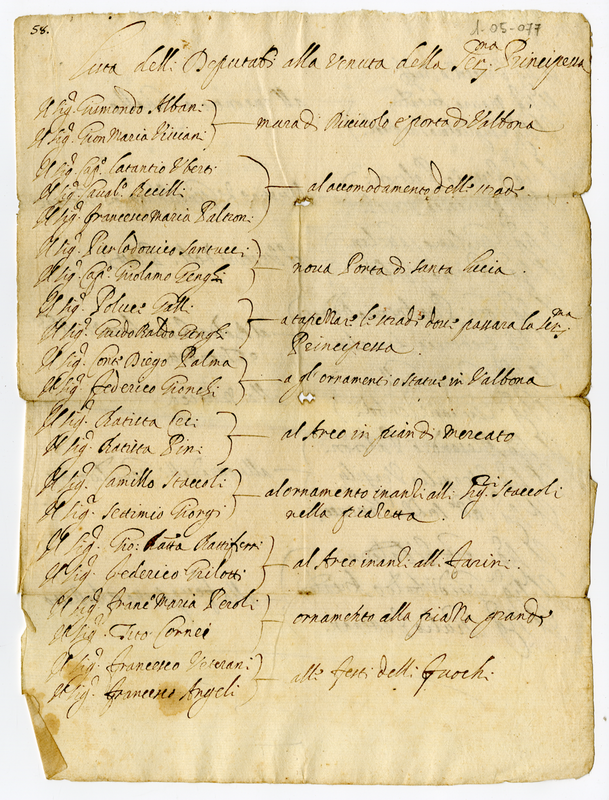 58.
1-05-077
Lista delli Deputati alla venuta della Ser.ma Principessa
Il Sig.r Guimondo Albani
Il Sig.r Gion Maria Viviani
mura di Risciuolo e porta di Valbona
Il Sig.r Cap.o Latantio Uberti
Il Sig.r Caval.r Becilli
Il Sig.r Francesco Maria Falcon:
al accomodamento delle strade
Il Sig.r Pierlodovico Santucci
Il Sig.r Cap.o Girolamo Genghi
nova Porta di santa Lucia .
Il Sig.r Police Galli
Il Sig.r Guido Baldo Genghi
a tapezzare le strade dove passara la Ser.ma
Principessa .
Il Sig.r Conte Diego Palma
Il Sig.r Federico Gionchi
a gl' ornamenti e statue in Valbona
Il Sig.r Batista Cec:
Il Sig.r Batista Pin:
al Arco in pian di mercato
Il Sig.r Camillo Staccoli
Il Sig.r Settimio Giorgi
al ornamento inanzi alli Sig.ri Staccoli
nella piazzetta .
Il Sig.r Gio: Batta Battiferri
Il Sig.r Federico Grilotti
al Arco inanzi alli Farini .
Il Sig.r Franc.o Maria Peroli
Il Sig.r Tito Cornei
ornamento alla piazza grande
Il Sig.r Francesco Veterani
Il Sig.r Francesco Angeli
alle feste delli fuochi